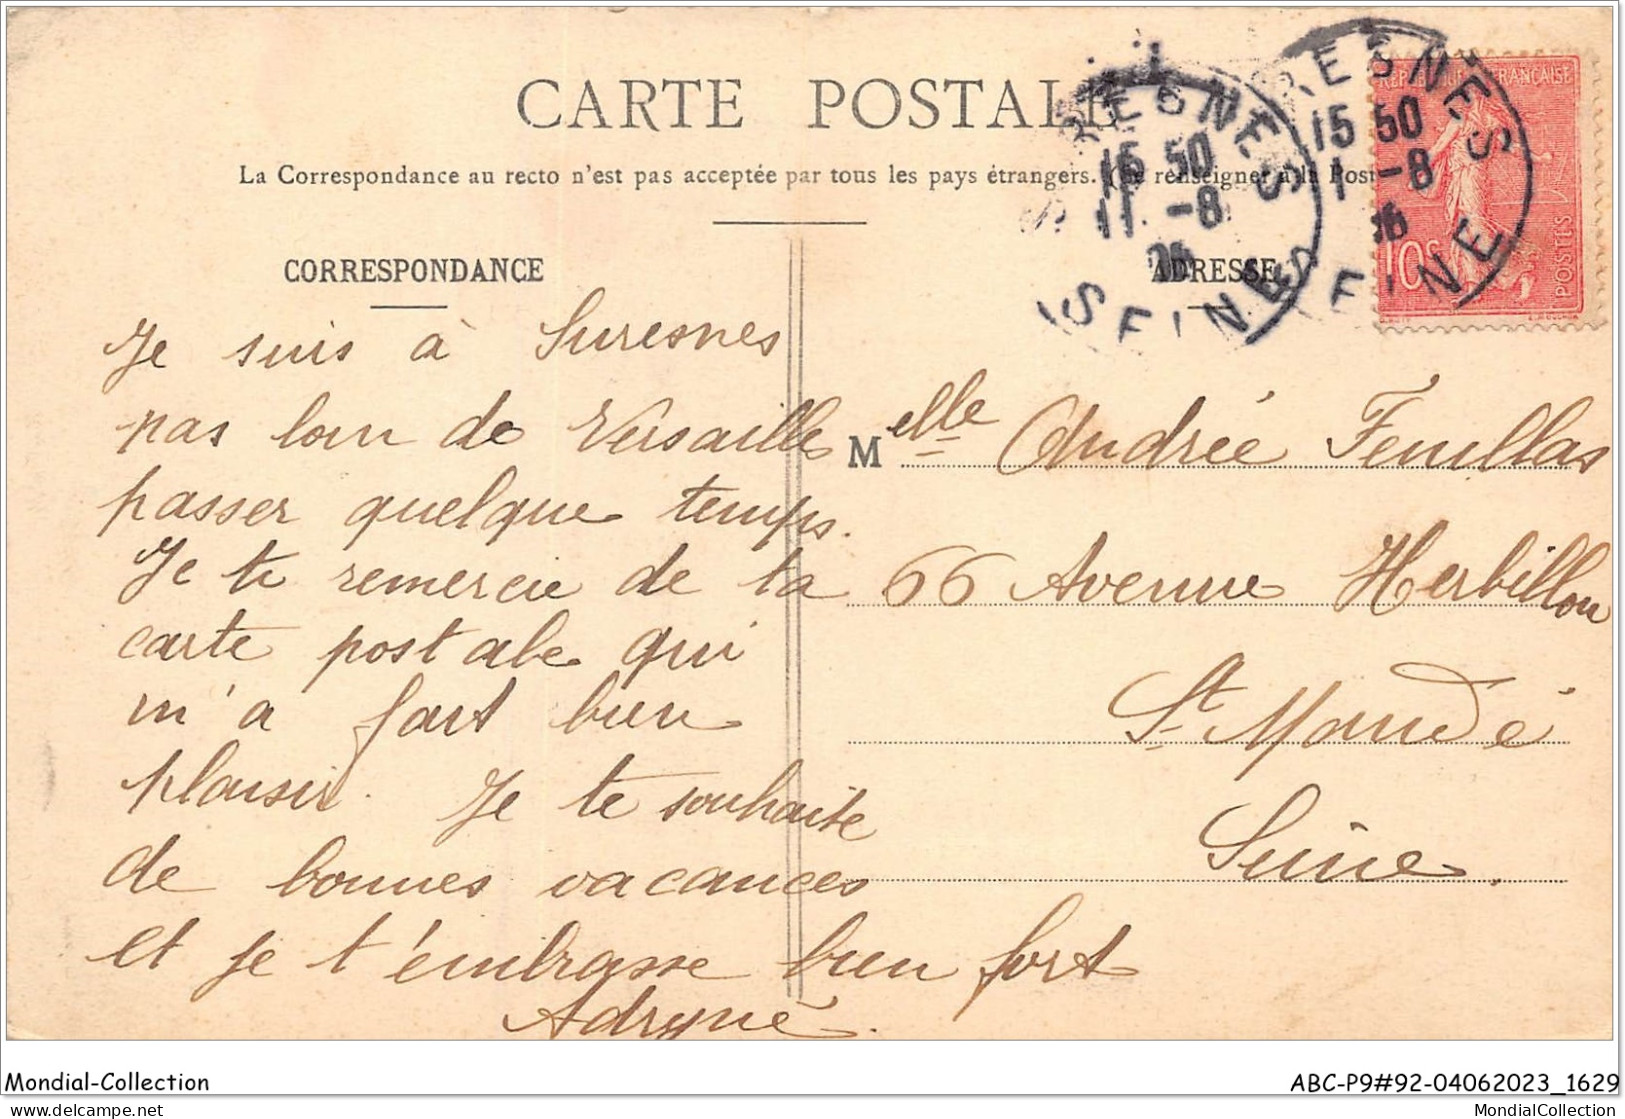 CARTE POSTALE
La Correspondance au recto n'est pas acceptée par tous les pays étrangers. (Se renseigner à la Post
CORRESPONDANCE
ADRESSE
RESNES
15 50
11 -8
06
SEINE
RESNES
15 50
1 -8
06
EINE
RÉPUBLIQUE FRANÇAISE
10c
POSTES
Je suis à Suresnes
pas loin de Versailles
passer quelque temps.
Je te remercie de ta
carte postale qui
m'a fort bien
plaisir. Je te souhaite
de bonnes vacances
et je t'embrasse bien fort
Adryné.
Melle Andrée Feuillas
66 Avenue Herbillon
St Mandé
Seine.
Mondial-Collection
ABC-P9#92-04062023_1629
delcampe.net
MondialCollection